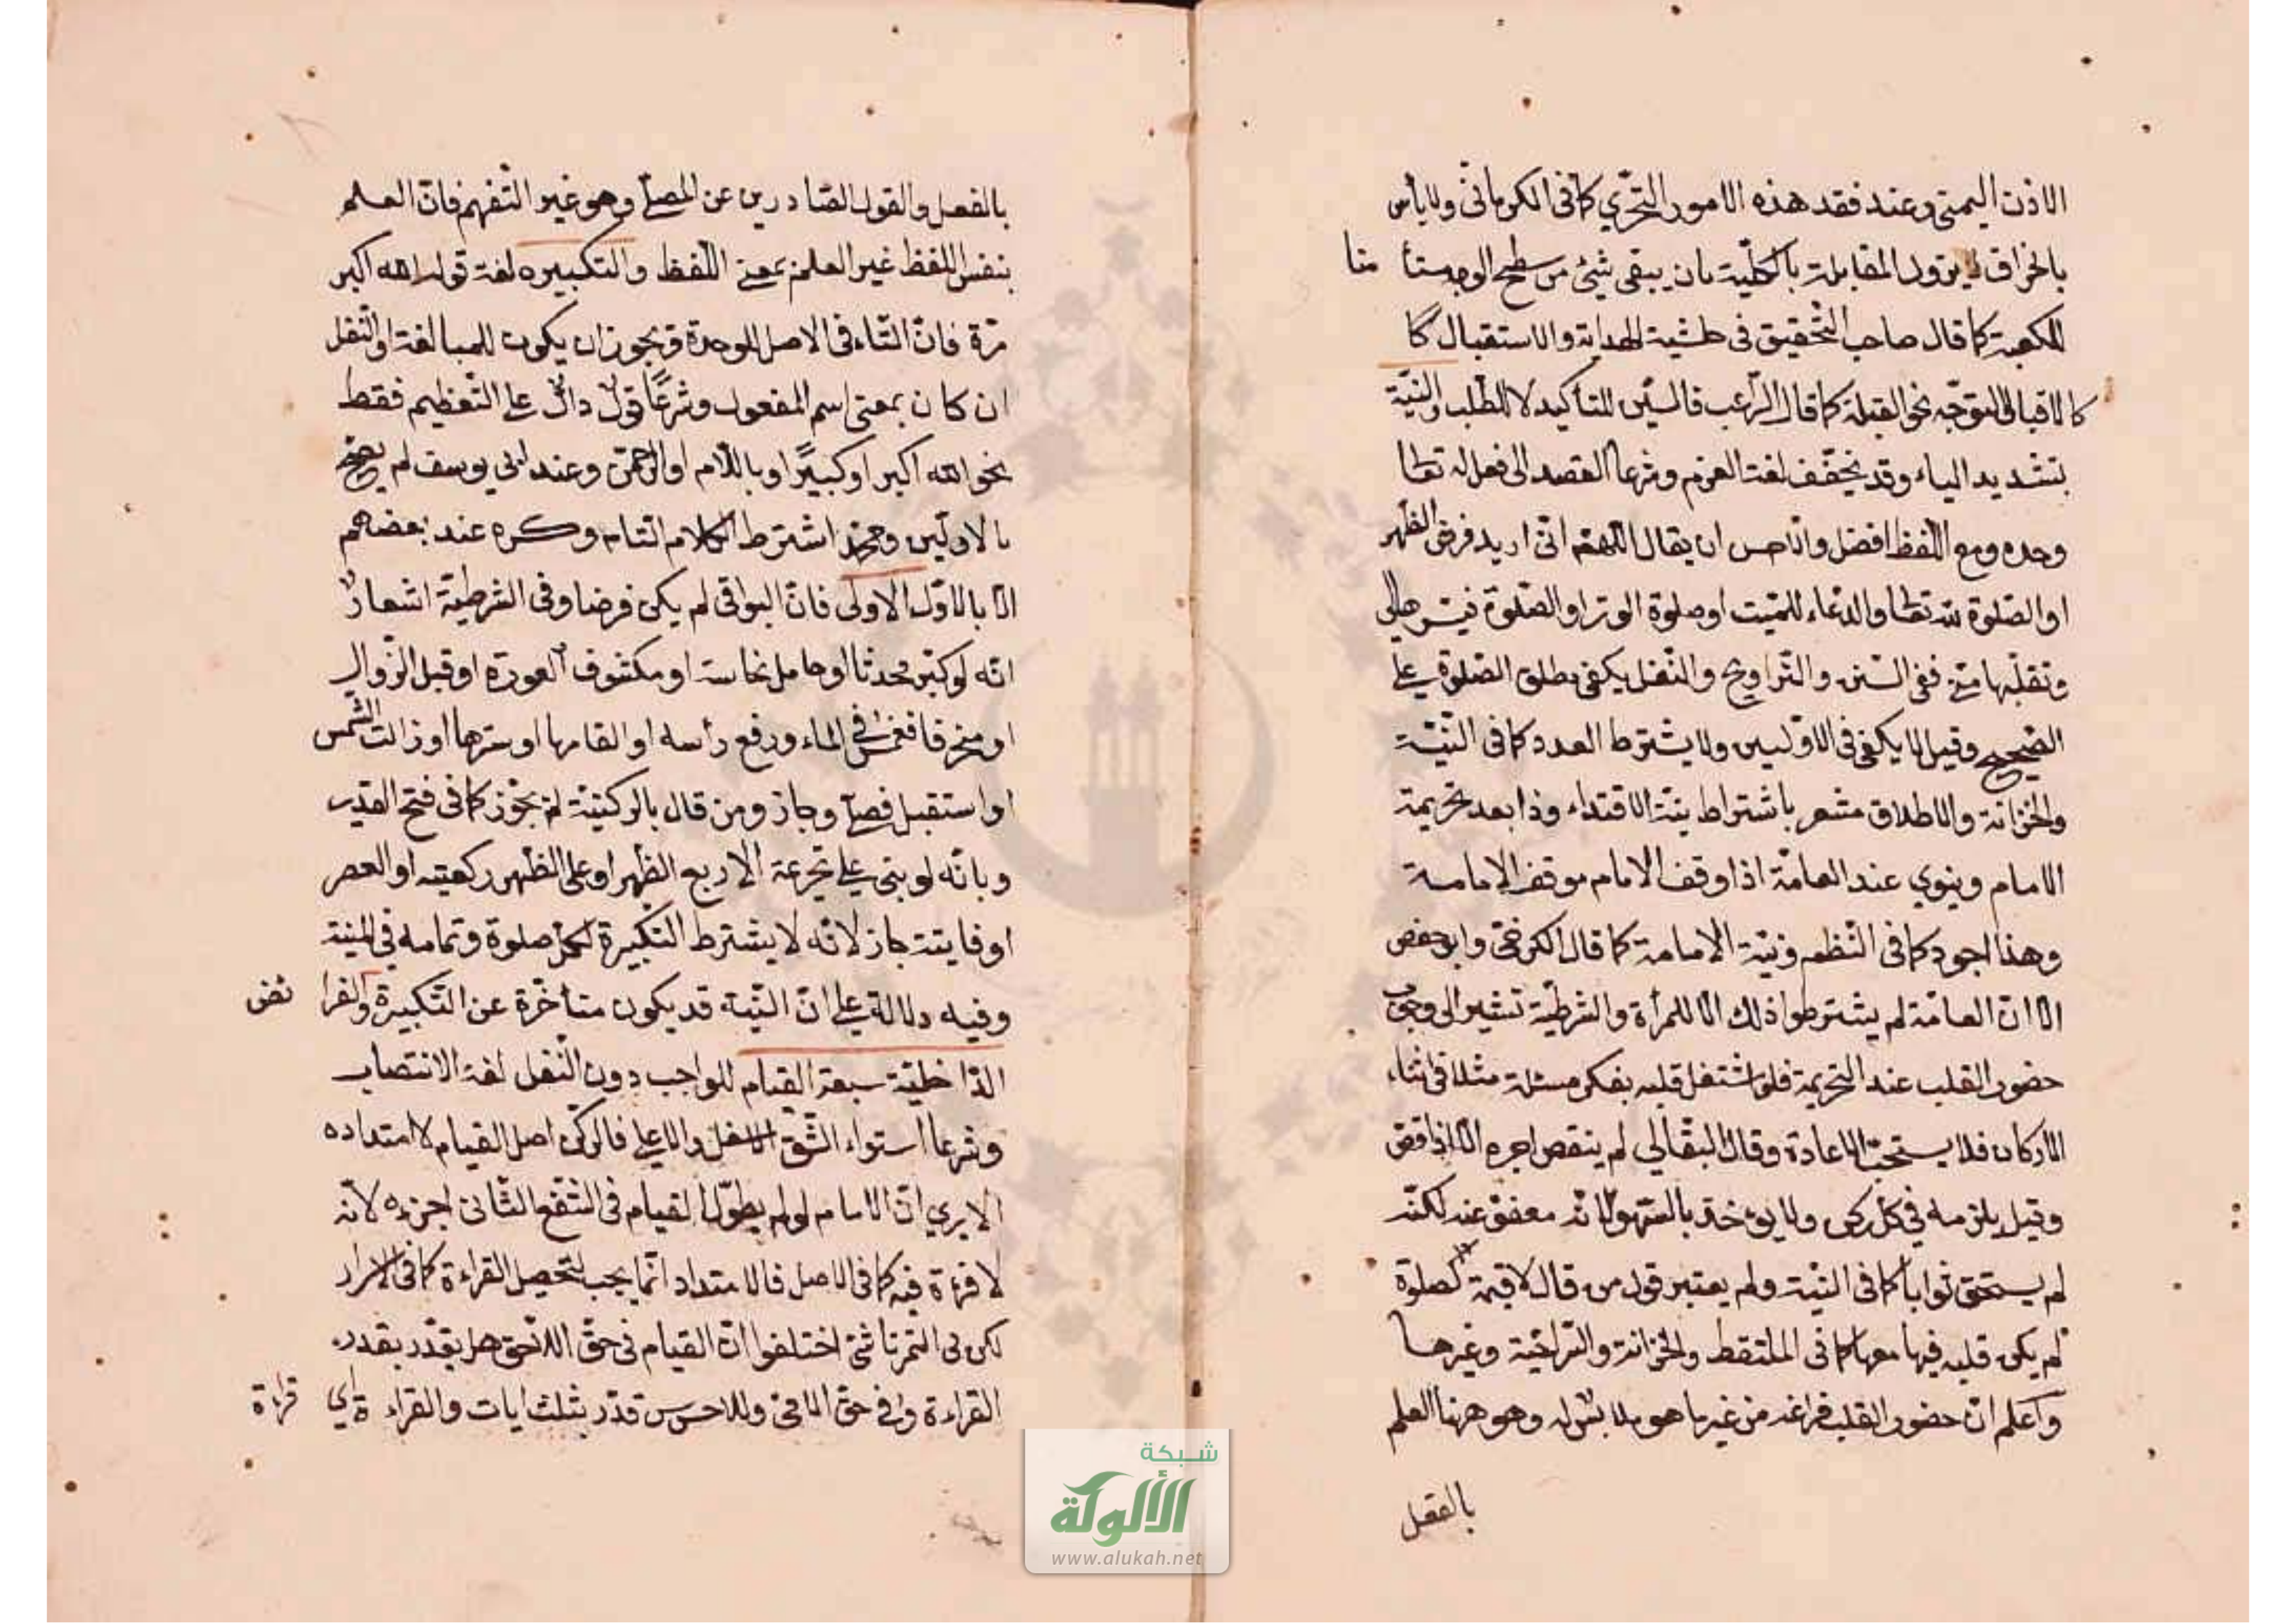 الاذن اليمنى وعند فقد هذه الامور التحري كما فى الكرمانى ولا بأس
بانحراف لا يزول المقابلة بالكلية بان يبقى شيئ من سطح الوجه مسامتا
للكعبة كما قال صاحب التحقيق فى حاشية الهداية والاستقبال
كالاقبال التوجه نحو القبلة كما قال الراغب فالسين للتأكيد لا للطلب والنية
بتشديد الياء وقد يخفف لغة العزم وشرعا القصد الى فعل له تعالى
وحده ومع اللفظ افضل والاحسن ان يقال اللهم انى اريد فرض الظهر
او الصلوة لله تعالى والدعاء للميت او صلوة الوتر او الصلوة فيسر هالى
وتقبلها منى ففى السنن والتراويح والنفل يكفى مطلق الصلوة على
الصحيح وقيل لا يكفى فى الاوليين ولا يشترط العدد كما فى
والخزانة والاطلاق مشعر باشتراط نية الاقتداء وذا بعد تحريمة
الامام وينوي عند العامة اذا وقف الامام موقف الامامة
وهذا اجود كما فى النظم ونية الامامة كما قال الكرخى وابو حفص
الا ان العامة لم يشترطوا ذلك الا للمرأة والشرطية تشير الى وجوب
حضور القلب عند التحريمة فلو اشتغل قلبه بفكر مسئلة مثلا فى اثناء
الاركان فلا يستحب الاعادة وقال البقالي لم ينقص اجره الا اذا قصر
وقيل يلزمه في كل ركن ولا يؤخذ بالسهو لانه معفو عنه لكنه
لم يستحق ثوابا كما فى ولم يعتبر قول من قال لا قيمة لصلوة
لم يكن قلبه فيها معها كما فى الملتقط والخزانة والسراجية وغيرها
واعلم ان حضور القلب فراغه من غير ما هو ملابس له وهو ههنا العلم
بالفعل
بالفعل والقول الصادرين عن المصلى وهو غير التفهم فان العلم
بنفس اللفظ غير العلم بمعنى اللفظ والتكبيرة لغة قول الله اكبر
مرة فان التاء فى الاصل للوحدة ويجوز ان يكون للمبالغة او النقل
ان كان بمعنى اسم المفعول وشرعا قول دال على التعظيم فقط
نحو الله اكبر او كبيرا او باللام او الرحمن وعند ابي يوسف لم يصح
الا بالاولين ومحمد اشترط الكلام التام وكره عند بعضهم
الا بالاول الاولى فان البواقى لم يكن فرضا وفى الشرطية اشعار
انه لو كبر محدثا او حامل نجاسة او مكشوف العورة او قبل الزوال
او منحرفا فغمس في الماء ورفع رأسه او القاها او سترها او زالت الشمس
او استقبل فصلى وجاز ومن قال بالركنية لم يجوز كما فى فتح القدير
وبانه لو بنى على تحريمة الاربع الظهر او على الظهر ركعتيه او العصر
او فايتة جاز لانه لا يشترط التكبيرة لكل صلوة وتمامه في المنية
وفيه دلالة على ان النية قد يكون متأخرة عن التكبيرة والفرائض
الداخلية سبعة القيام للواجب دون النفل لغة الانتصاب
وشرعا استواء الشق الاسفل والاعلى فالركن اصل القيام لا امتداده
الا يري ان الامام لو لم يطول القيام فى الشفع الثانى اجزءه لانه
لا قرءة فيه كما فى الاصل فالامتداد انما يجب لتحصيل القراءة كما فى الاسرار
لكن فى التمرتاشى اختلفوا ان القيام فى حق اللاحق هل يقدر بقدر
القراءة وفى حق الامى والاخرس قدر بثلث ايات والقراءة اي قراءة
شبكة
الألوكة
www.alukah.net